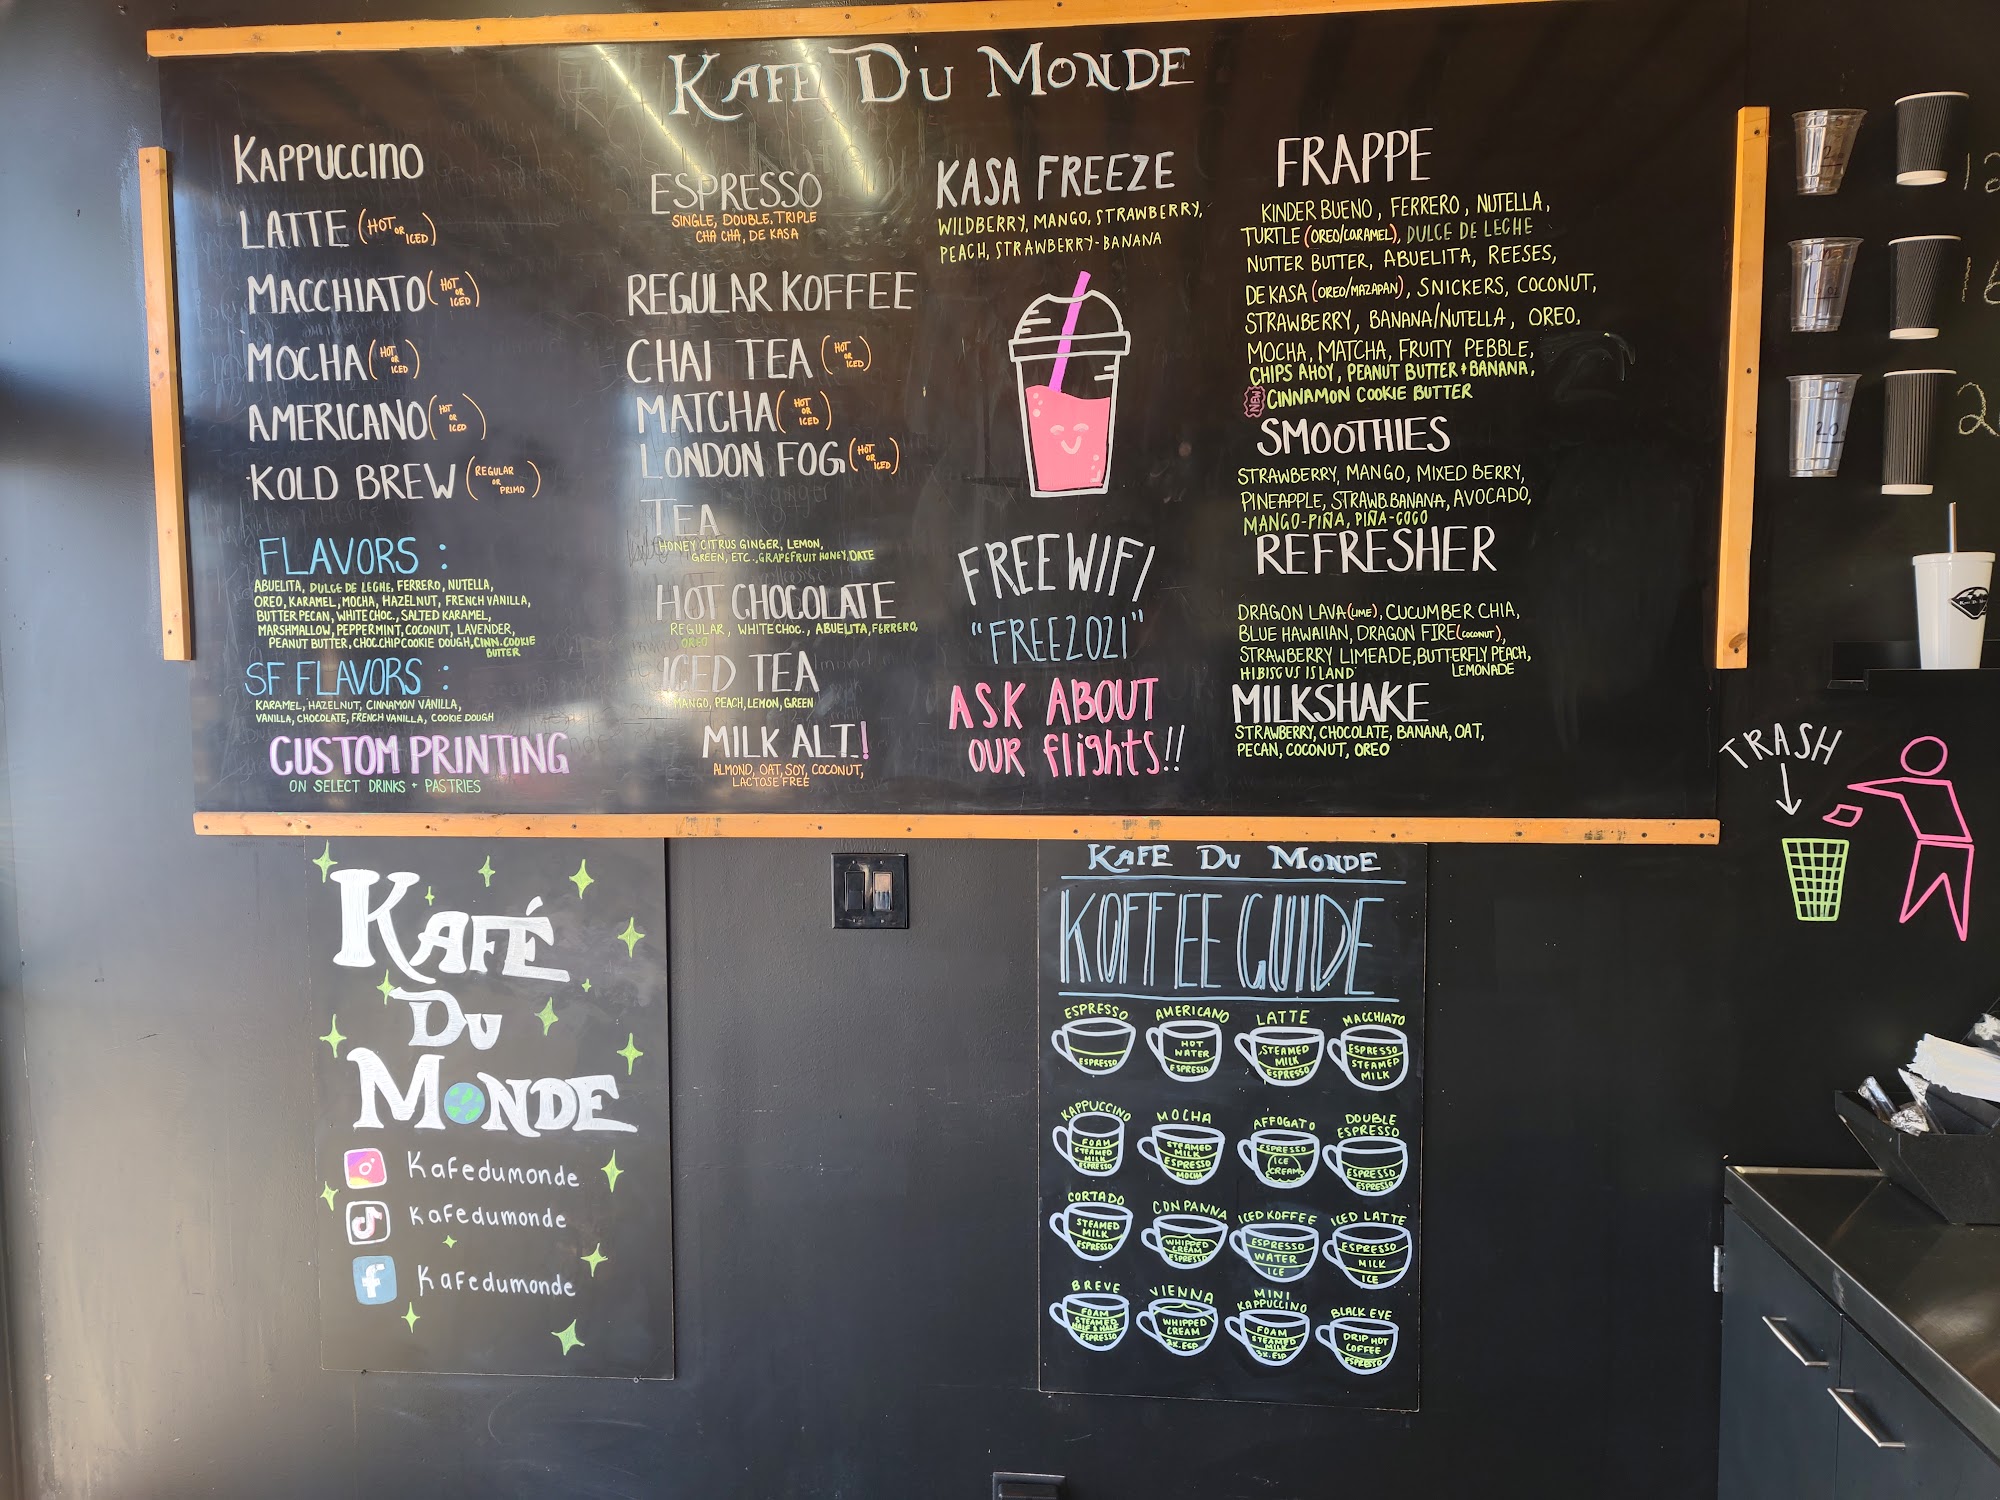 KAFE DU MONDE
KAPPUCCINO
LATTE (HOT OR ICED)
MACCHIATO (HOT OR ICED)
MOCHA (HOT OR ICED)
AMERICANO (HOT OR ICED)
KOLD BREW (REGULAR OR PRIMO)
FLAVORS :
ABUELITA, DULCE DE LECHE, FERRERO, NUTELLA,
OREO, KARAMEL, MOCHA, HAZELNUT, FRENCH VANILLA,
BUTTER PECAN, WHITE CHOC., SALTED KARAMEL,
MARSHMALLOW, PEPPERMINT, COCONUT, LAVENDER,
PEANUT BUTTER, CHOC.CHIP COOKIE DOUGH, CINN.COOKIE
BUTTER
SF FLAVORS :
KARAMEL, HAZELNUT, CINNAMON VANILLA,
VANILLA, CHOCOLATE, FRENCH VANILLA, COOKIE DOUGH
CUSTOM PRINTING
ON SELECT DRINKS + PASTRIES
ESPRESSO
SINGLE, DOUBLE, TRIPLE
CHA CHA, DE KASA
REGULAR KOFFEE
CHAI TEA (HOT OR ICED)
MATCHA (HOT OR ICED)
LONDON FOG (HOT OR ICED)
TEA
HONEY CITRUS GINGER, LEMON,
GREEN, ETC., GRAPEFRUIT HONEY, DATE
HOT CHOCOLATE
REGULAR, WHITE CHOC., ABUELITA, FERRERO,
OREO
ICED TEA
MANGO, PEACH, LEMON, GREEN
MILK ALT.!
ALMOND, OAT, SOY, COCONUT,
LACTOSE FREE
KASA FREEZE
WILDBERRY, MANGO, STRAWBERRY,
PEACH, STRAWBERRY-BANANA
FREE WIFI
"FREE2021"
ASK ABOUT
OUR flights!!
FRAPPE
KINDER BUENO, FERRERO, NUTELLA,
TURTLE (OREO/CARAMEL), DULCE DE LECHE
NUTTER BUTTER, ABUELITA, REESES,
DE KASA (OREO/MAZAPAN), SNICKERS, COCONUT,
STRAWBERRY, BANANA/NUTELLA, OREO,
MOCHA, MATCHA, FRUITY PEBBLE,
CHIPS AHOY, PEANUT BUTTER + BANANA,
NEW CINNAMON COOKIE BUTTER
SMOOTHIES
STRAWBERRY, MANGO, MIXED BERRY,
PINEAPPLE, STRAWB.BANANA, AVOCADO,
MANGO-PIÑA, PIÑA-COCO
REFRESHER
DRAGON LAVA (LIME), CUCUMBER CHIA,
BLUE HAWAIIAN, DRAGON FIRE (COCONUT),
STRAWBERRY LIMEADE, BUTTERFLY PEACH,
HIBISCUS ISLAND LEMONADE
MILKSHAKE
STRAWBERRY, CHOCOLATE, BANANA, OAT,
PECAN, COCONUT, OREO
TRASH
KAFÉ
DU
MONDE
Kafedumonde
Kafedumonde
Kafedumonde
KAFE DU MONDE
KOFFEE GUIDE
ESPRESSO
ESPRESSO
AMERICANO
HOT
WATER
ESPRESSO
LATTE
STEAMED
MILK
ESPRESSO
MACCHIATO
ESPRESSO
STEAMED
MILK
KAPPUCCINO
FOAM
STEAMED
MILK
ESPRESSO
MOCHA
STEAMED
MILK
ESPRESSO
MOCHA
AFFOGATO
ESPRESSO
ICE
CREAM
DOUBLE
ESPRESSO
ESPRESSO
ESPRESSO
CORTADO
STEAMED
MILK
ESPRESSO
CON PANNA
WHIPPED
CREAM
ESPRESSO
ICED KOFFEE
ESPRESSO
WATER
ICE
ICED LATTE
ESPRESSO
MILK
ICE
BREVE
FOAM
STEAMED
HALF & HALF
ESPRESSO
VIENNA
WHIPPED
CREAM
2X.ESP
MINI
KAPPUCCINO
FOAM
STEAMED
MILK
2X.ESP
BLACK EYE
DRIP HOT
COFFEE
ESPRESSO